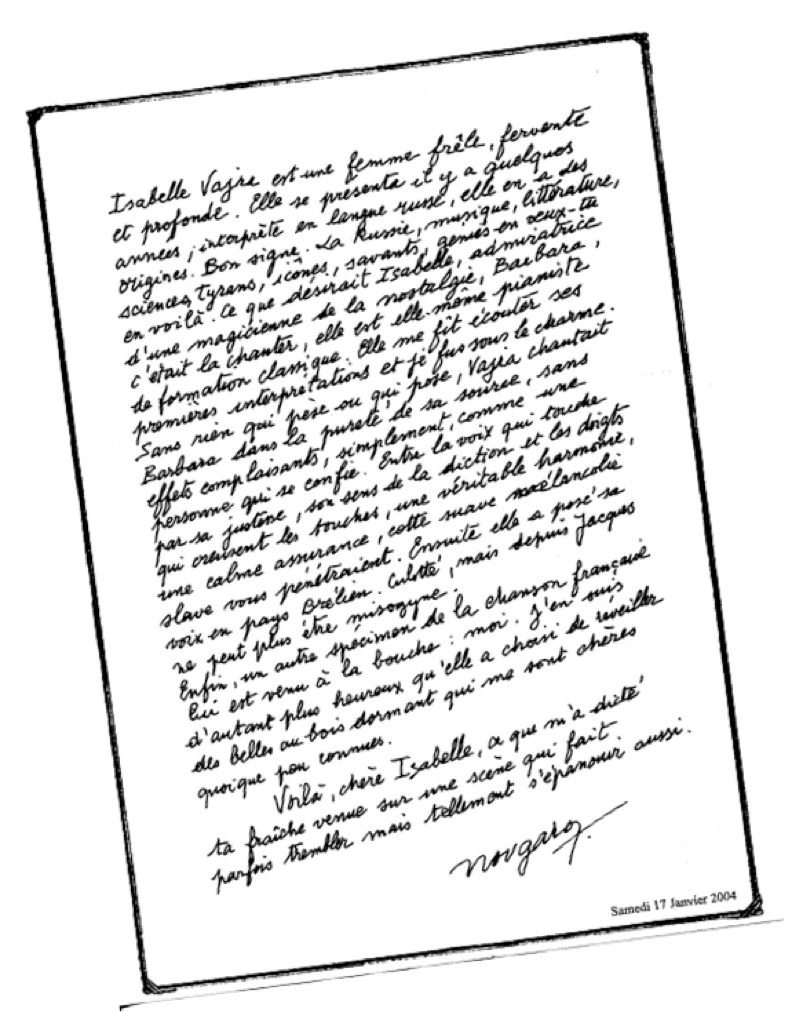 Isabelle Vajra est une femme frêle, fervente
et profonde. Elle se présenta il y a quelques
années, interprète en langue russe, elle en a des
origines. Bon signe. La Russie, musique, littérature,
sciences, tyrans, icônes, savants, génies en veux-tu
en voilà. Ce que désirait Isabelle, admiratrice
d'une magicienne de la nostalgie, Barbara,
c'était la chanter, elle est elle-même pianiste
de formation classique. Elle me fit écouter ses
premières interprétations et je fus sous le charme.
Sans rien qui pèse ou qui pose, Vajra chantait
Barbara dans la pureté de sa source, sans
effets complaisants, simplement, comme une
personne qui se confie. Entre la voix qui touche
par sa justesse, son sens de la diction et les doigts
qui creusent les touches, une véritable harmonie,
une calme assurance, cette suave mélancolie
slave vous pénétraient. Ensuite elle a posé sa
voix en pays Brélien. Culotté, mais depuis Jacques
ne peut plus être misogyne.
Enfin, un autre spécimen de la chanson française
lui est venu à la bouche : moi. J'en suis
d'autant plus heureux qu'elle a choisi de réveiller
des belles au bois dormant qui me sont chères
quoique peu connues.
Voilà, chère Isabelle, ce que m'a dicté
ta fraîche venue sur une scène qui fait
parfois trembler mais tellement s'épanouir aussi.
Nougaro.
Samedi 17 Janvier 2004